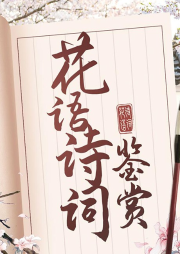 花语诗词
鉴赏